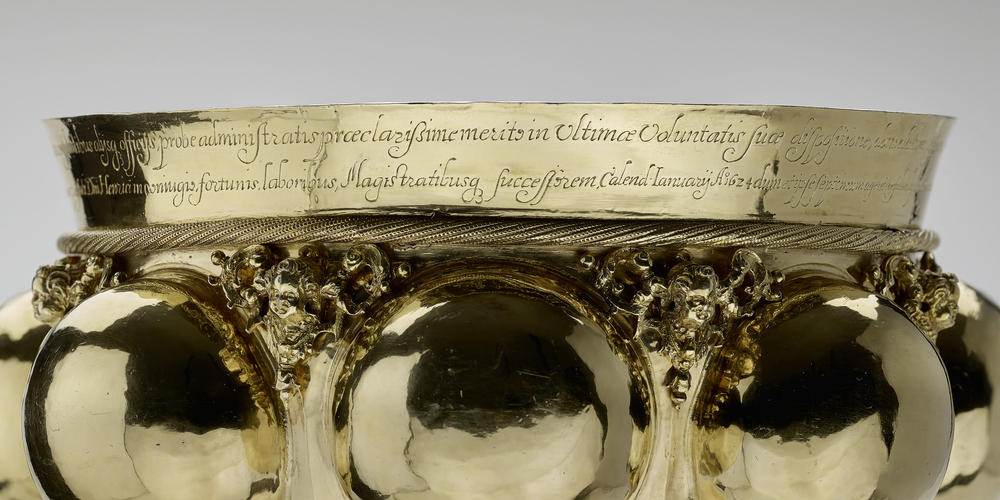 alijsq₃ officijs probe administratis præclarißime merito in Ultimæ Voluntatis suæ dispositione
Henrici in connugio, fortunis, laboribus, Magistratibusq₃ successorem Calend Ianuarij A° 1624 dum